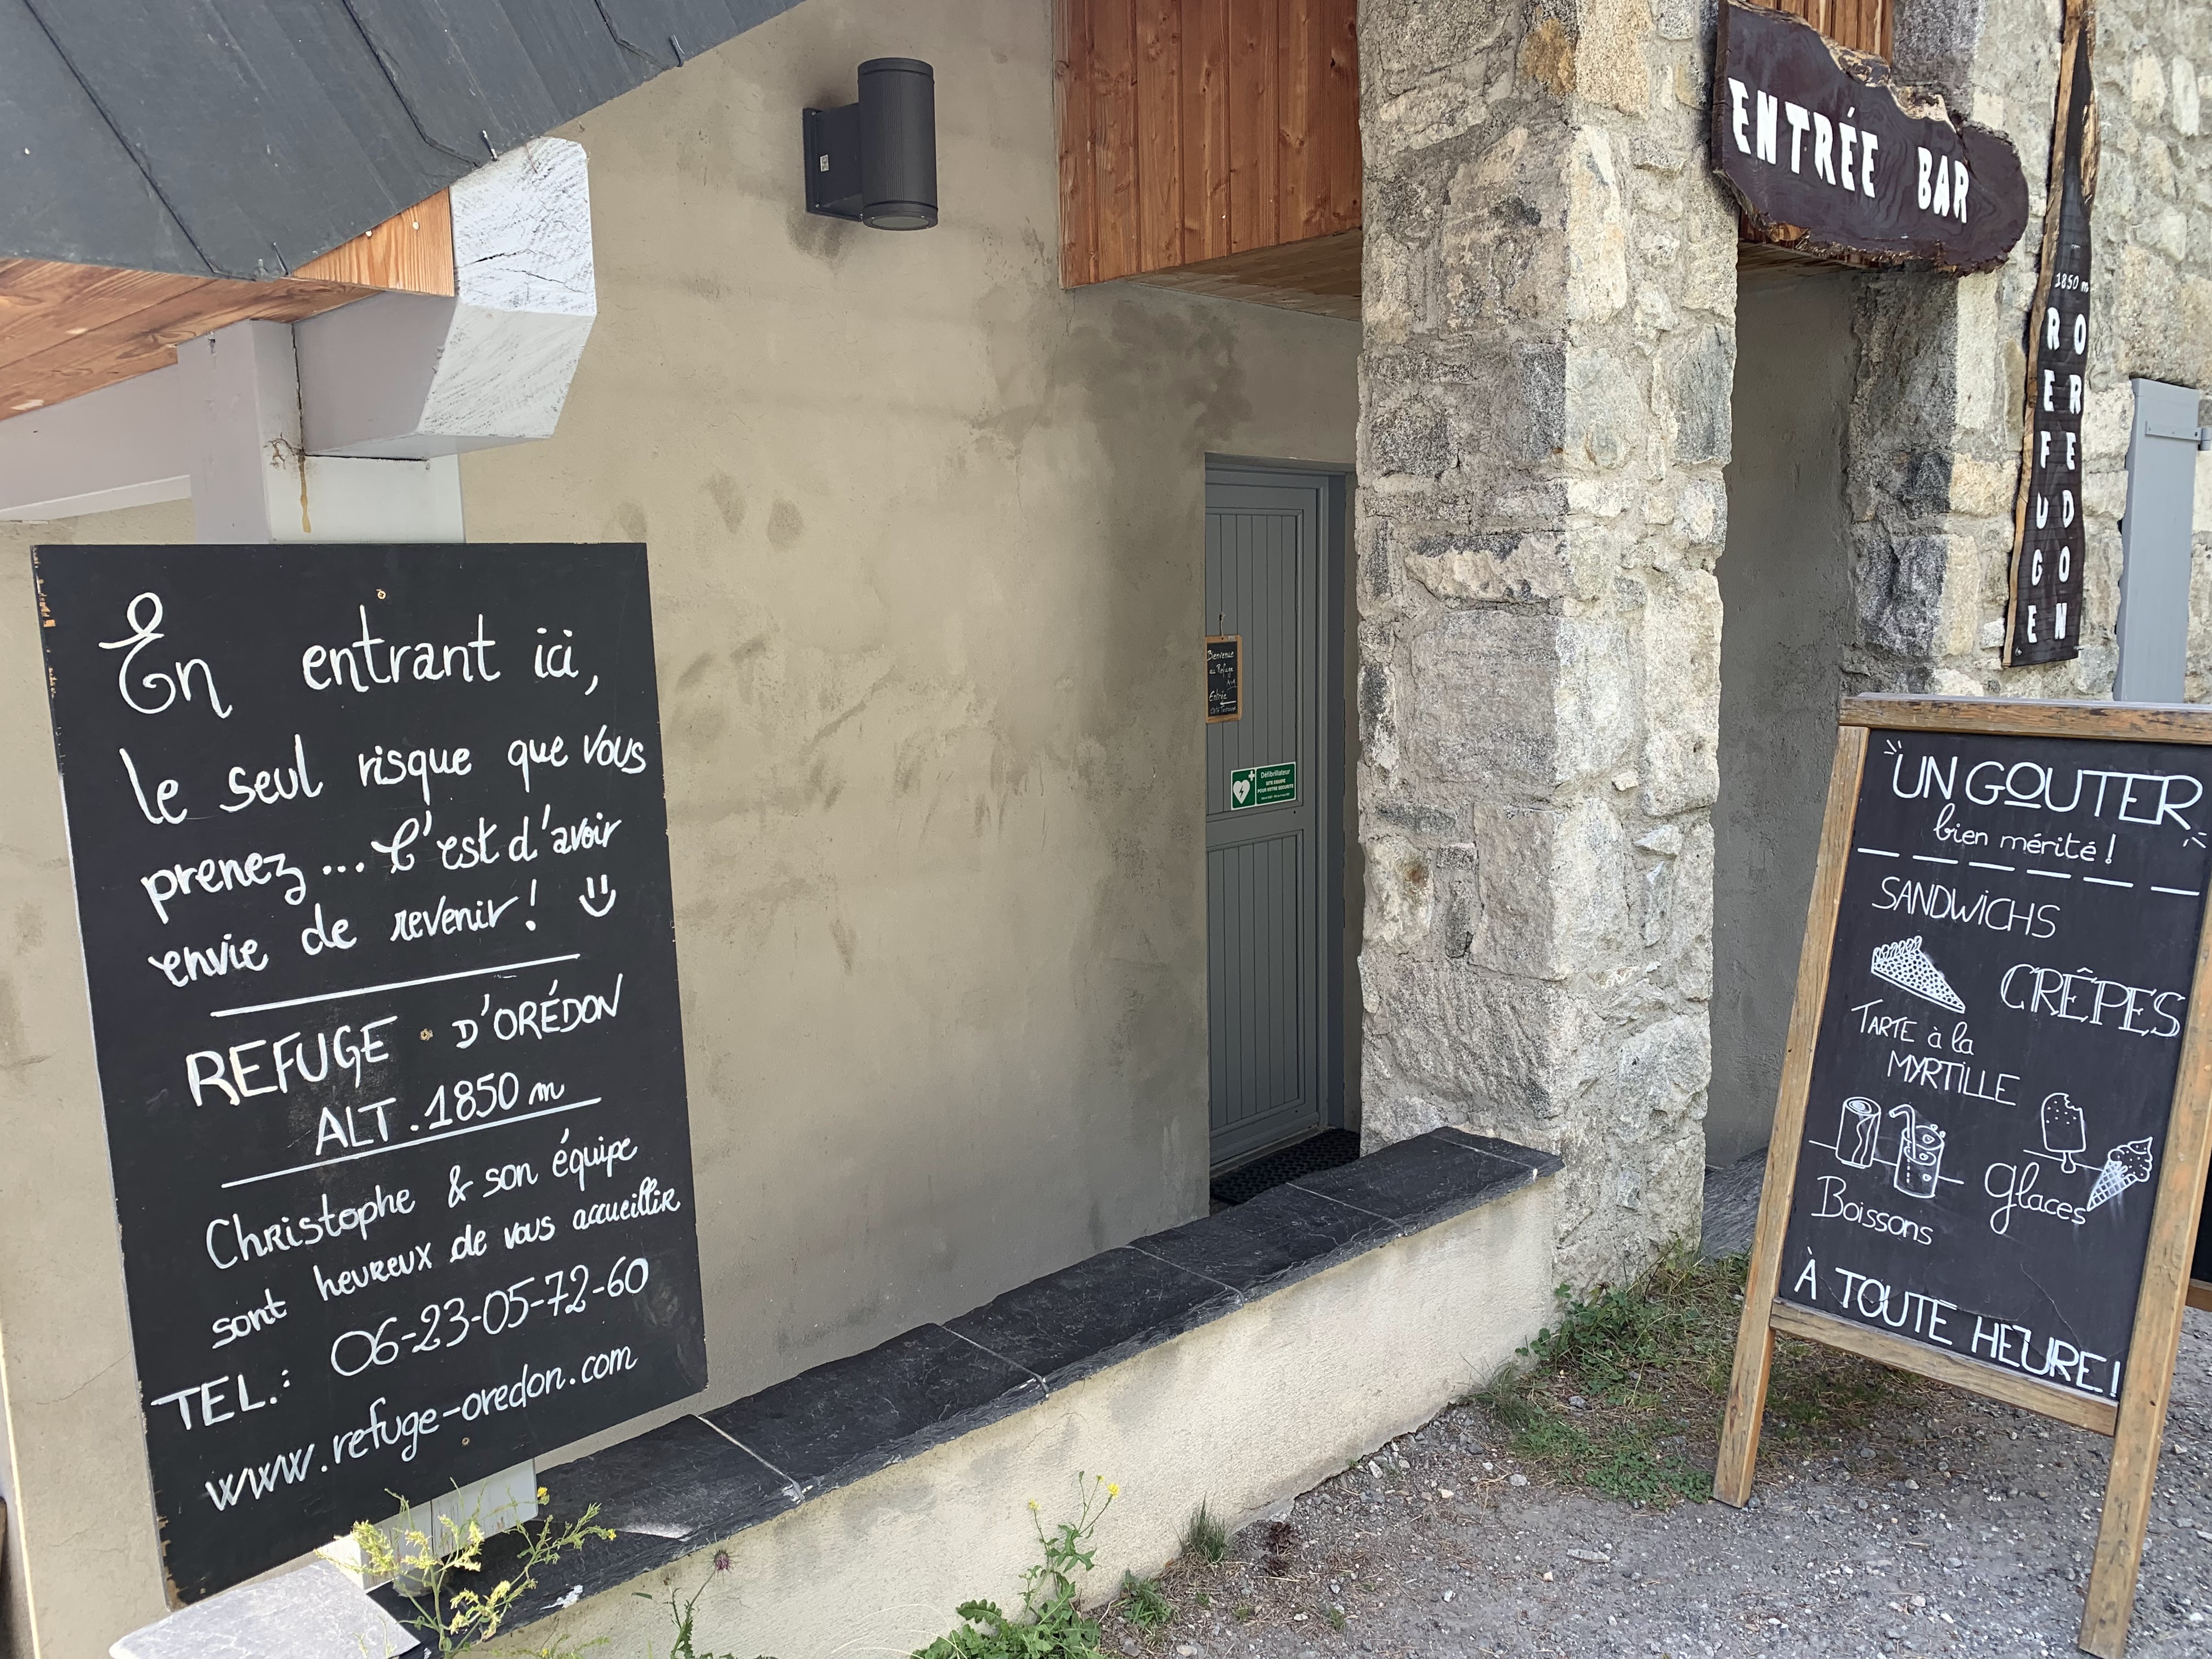 En entrant ici,
le seul risque que vous
prenez... C'est d'avoir
envie de revenir!
REFUGE D'ORÉDON
ALT. 1850 m
Christophe & son équipe
sont heureux de vous accueillir
TEL.: 06-23-05-72-60
www.refuge-oredon.com
Bienvenue
au Refuge
Entrée
Défibrillateur
SITE EQUIPE
POUR VOTRE SECURITE
ENTRÉE BAR
1850 m
REFUGE
OREDON
UN GOUTER
bien mérité!
SANDWICHS
CRÊPES
TARTE à la
MYRTILLE
Boissons
glaces
À TOUTE HEURE!